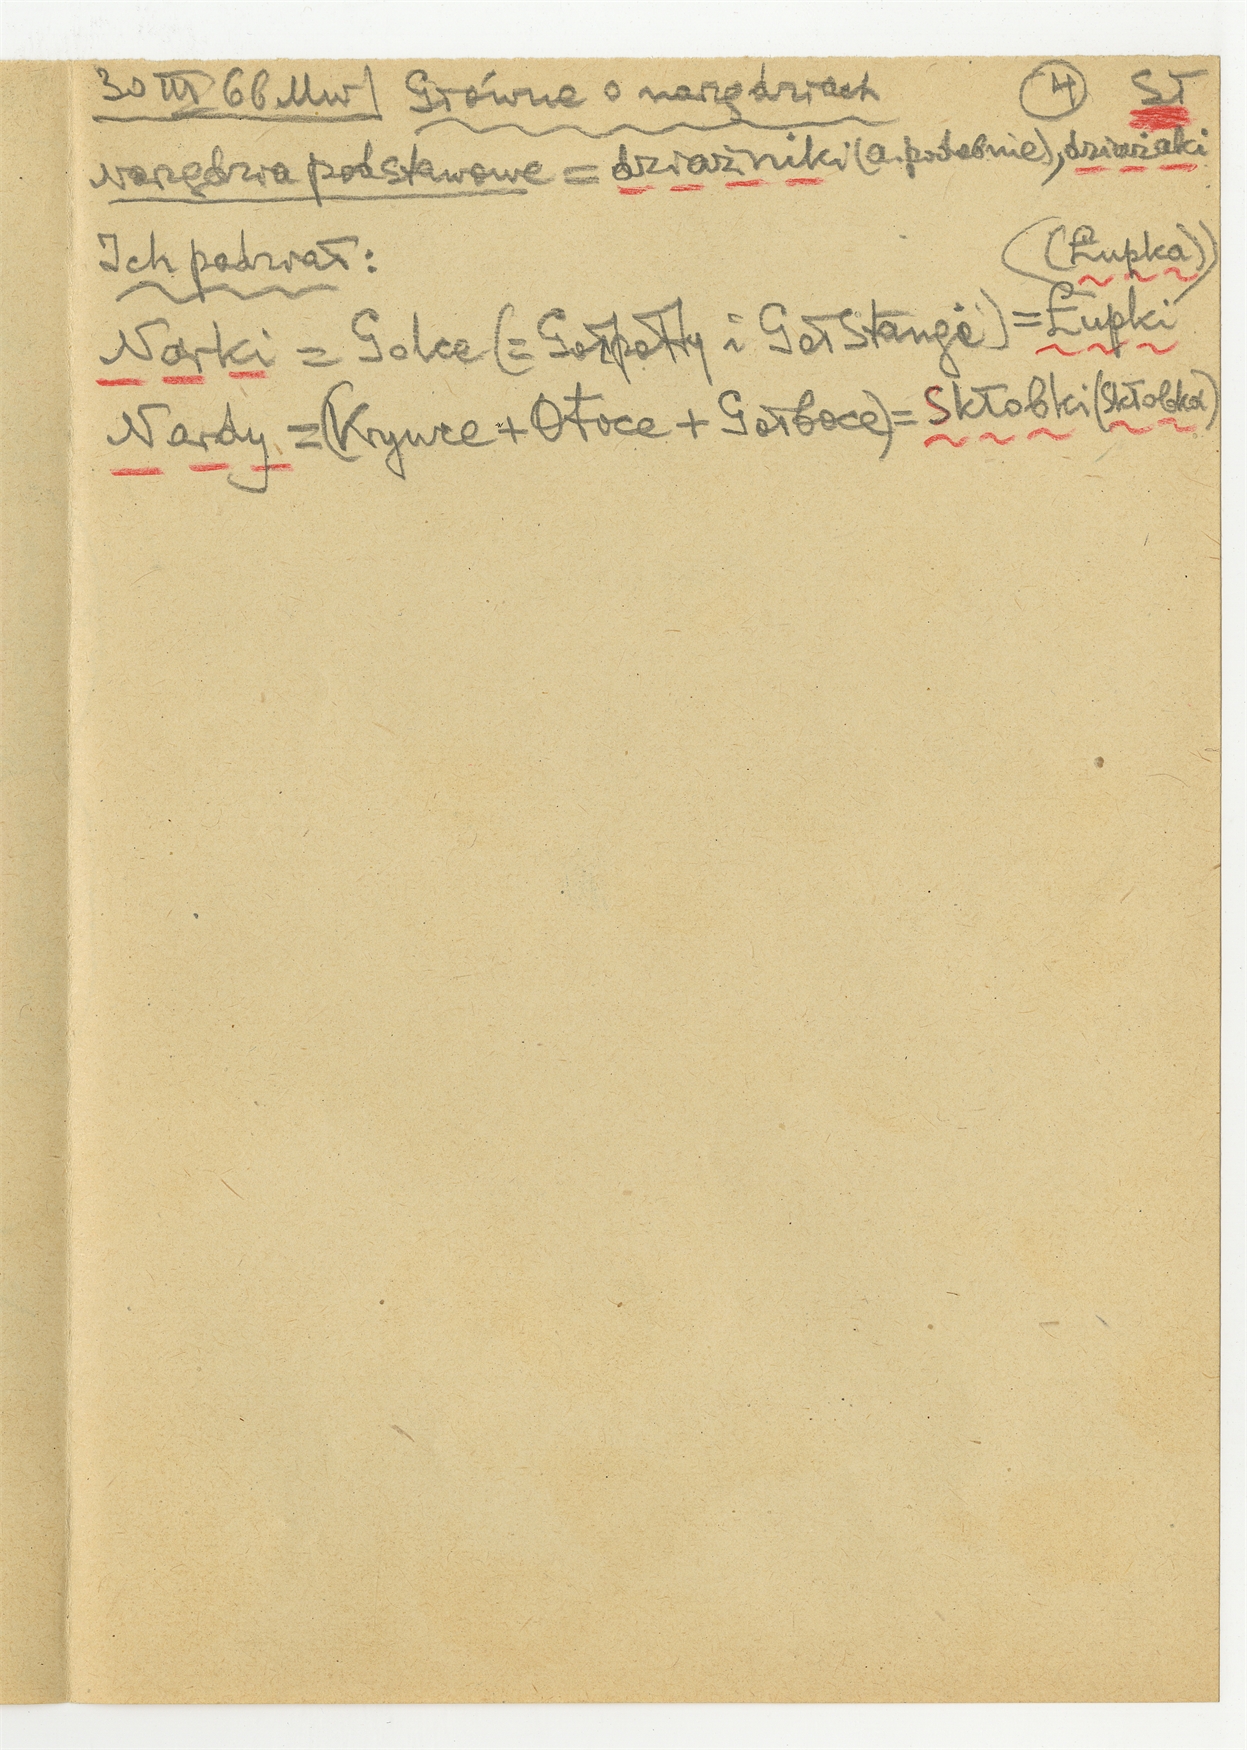 30 III 66 Mw] Główne o narzędziach 4 SŁ
narzędzia podstawowe = działniki (a. podobnie), działaki
Ich podział: (Łupka)
Narki = Golce (= i Gałstange) = Łupki
Nardy = (Krywce + Otoce + Gałboce) = Skłobki (Skłobka)